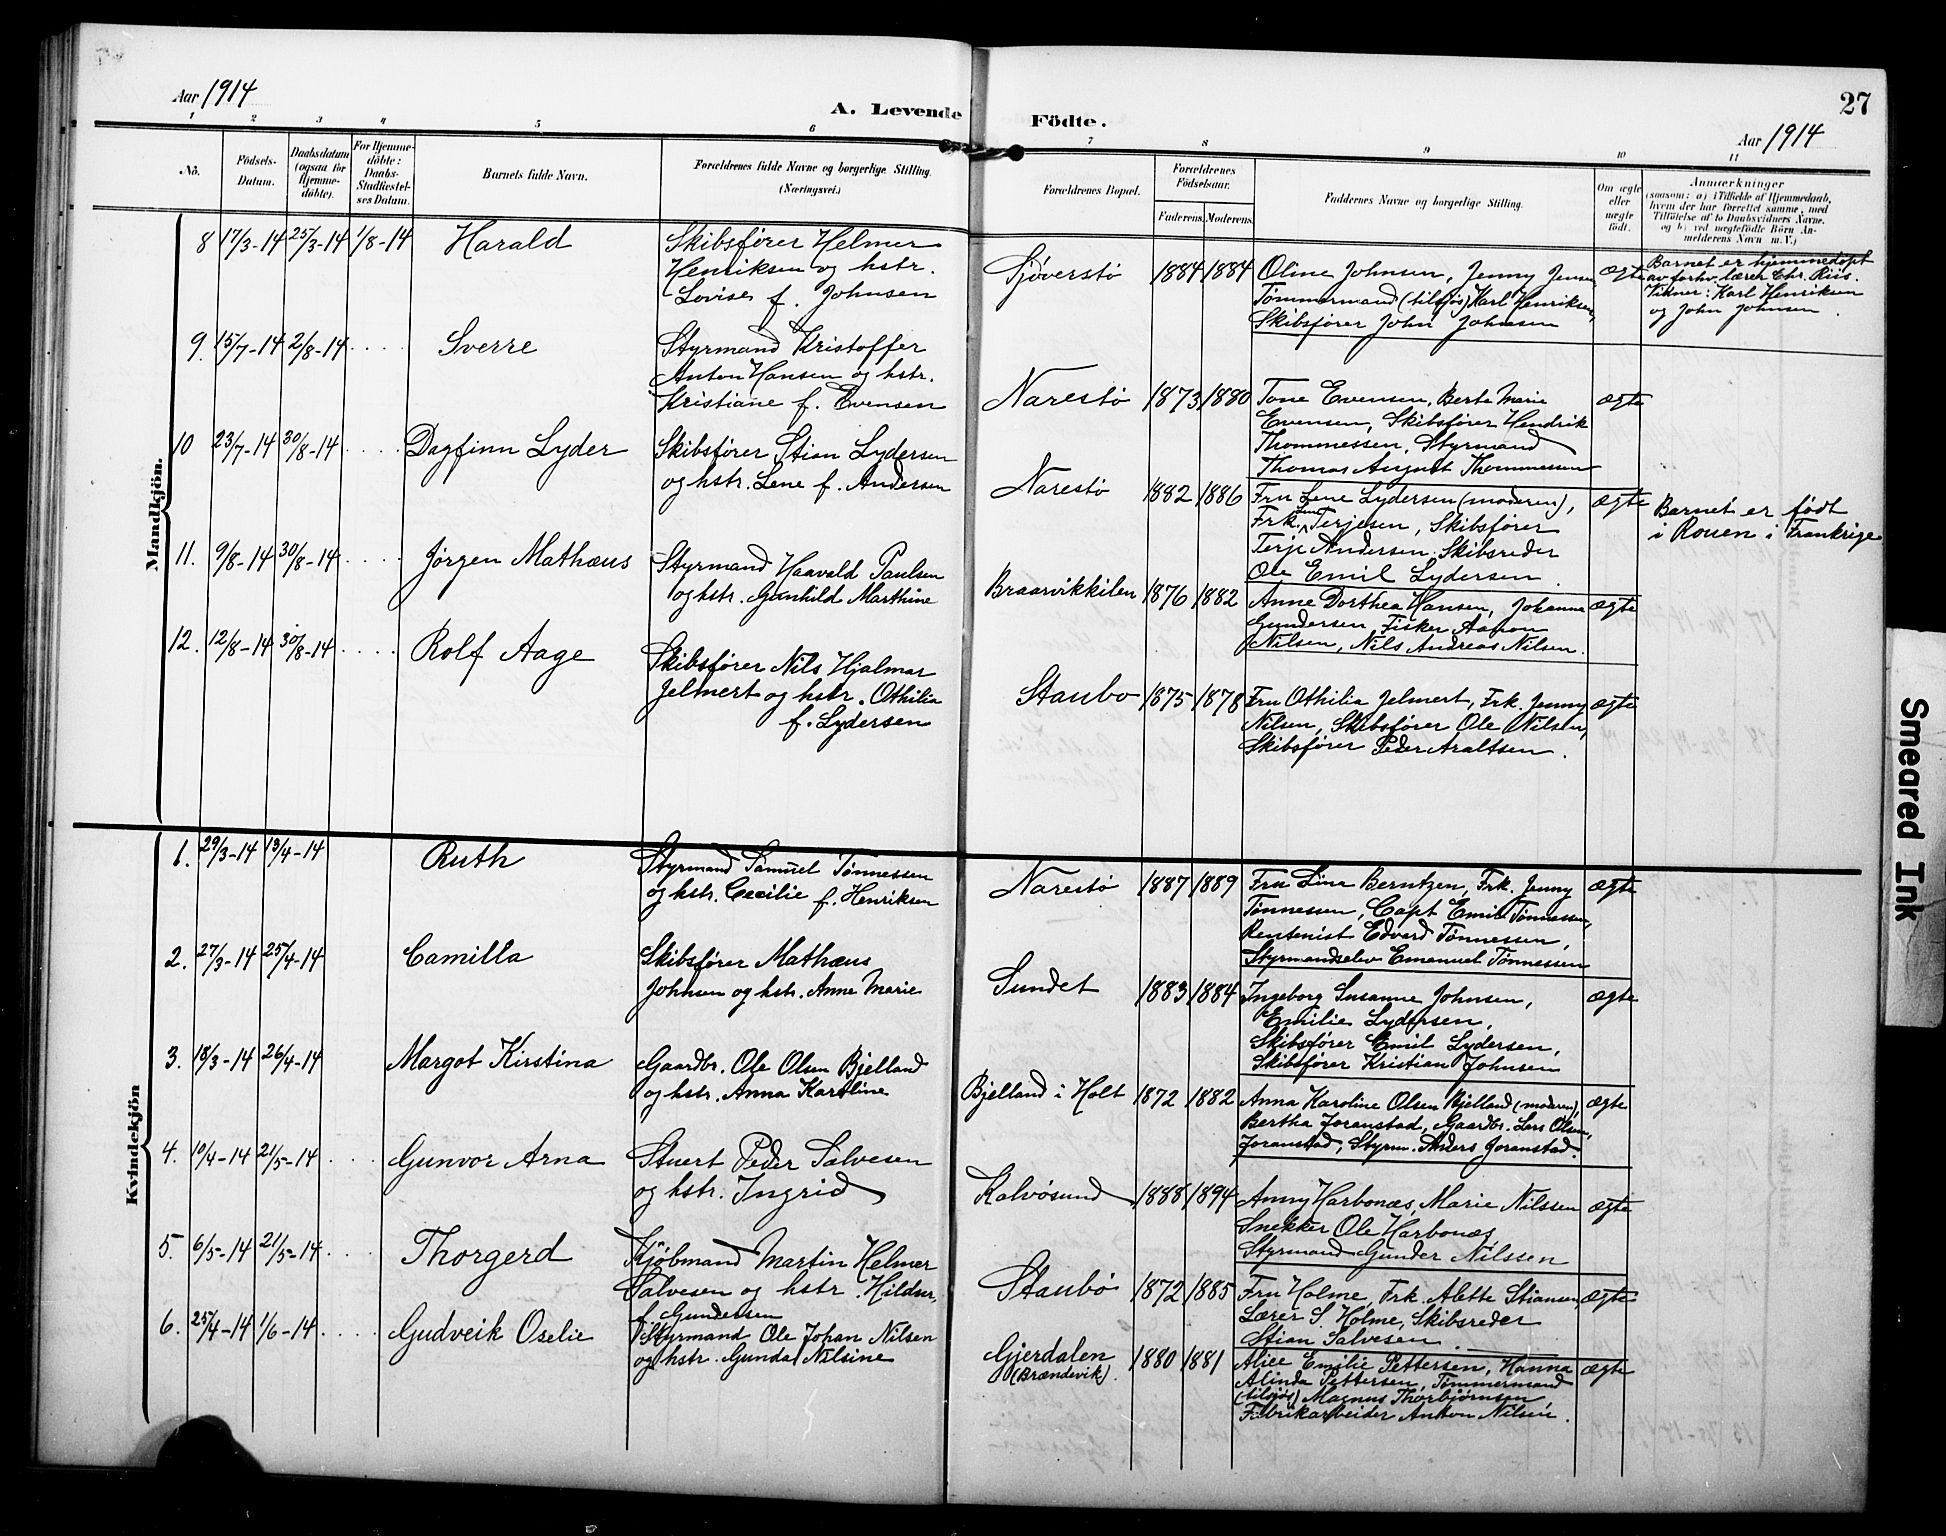 Aar 1914
A. Levende Födte.
27
Aar 1914
1 2 3 4 5 6 7 8 9 10 11
No.
Födsels-
Datum.
Daabsdatum
(ogsaa for
Hjemme-
döbte).
For Hjemme-
döbte:
Daabs-
Stadfæstel-
ses Datum.
Barnets fulde Navn.
Forældrenes fulde Navne og borgerlige Stilling.
(Næringsvei.)
Forældrenes Bopæl.
Forældrenes
Födselsaar.
Faderens. Moderens.
Faddernes Navne og borgerlige Stilling.
Om ægte
eller
uægte
födt.
Anmærkninger
(saasom: a) i Tilfælde af Hjemmedaab,
hvem der har forrettet samme, med
Tilföielse af to Daabsvidners Navne.
og b) ved uægtefödte Börn An-
melderens Navn m. V.)
Mandkjön.
8 17/3-14 25/3-14 1/8-14 Harald
Skibsfører Helmer
Henriksen og hstr.
Lovise f. Johnsen
Sjöverstø 1884 1884
Oline Johnsen, Jenny Jensen
Tømmermand (tilsjøs) Karl Henriksen,
Skibsfører John Johnsen
ægte
Barnet er hjemmedøpt
av forhv. lærer Chr. Riis.
Vidner: Karl Henriksen
og John Johnsen.
9. 15/7-14 2/8-14 .... Sverre
Styrmand Kristoffer
Anton Hansen og hstr.
Kristiane f. Evensen
Narestø 1873 1880
Tone Evensen, Berte Marie
Evensen, Skibsfører Hendrik
Thommessen, Styrmand
Thomas August Thommessen
ægte
10 23/7-14 30/8-14 .... Dagfinn Lyder
Skibsfører Stian Lydersen
og hstr. Lene f. Andersen
Narestø 1882 1886
Fru Lene Lydersen (moderen),
Frk. Terjesen, Skibsfører
Terje Andersen, Skibsreder
Ole Emil Lydersen.
ægte
Barnet er født
i Rouen i Frankrige
11. 9/8-14 30/8-14 .... Jørgen Mathæus
Styrmand Haavald Paulsen
og hstr. Gunhild Marthine
Braarvikkilen 1876 1882
Anne Dorthea Hansen, Johanna
Gundersen, Fisker Aanon
Nilsen, Nils Andreas Nilsen.
ægte
12. 12/8-14 30/8-14 .... Rolf Aage
Skibsfører Nils Hjalmar
Jelmert og hstr. Othilia
f. Lydersen
Staubo 1875 1878
Fru Othilia Jelmert, Frk. Jenny
Nilsen, Skibsfører Ole Nilsen,
Skibsfører Peder Araltsen.
ægte
Kvindekjön
1. 29/3-14 13/4-14 Ruth
Styrmand Samuel Tønnessen
og hstr. Cecilie f. Henriksen
Narestø 1887 1889
Fru Lina Berntzen, Frk. Jenny
Tønnessen, Capt Emil Tønnessen,
Rentenist Edvard Tønnessen,
Styrmandselev Emanuel Tønnessen
ægte
2. 27/3-14 25/4-14 Camilla
Skibsfører Mathæus
Johnsen og hstr. Anne Marie
Sundet 1883 1884
Ingeborg Susanne Johnsen,
Emilie Lydersen,
Skibsfører Emil Lydersen,
Skibsfører Kristian Johnsen
ægte
3. 18/3-14 26/4-14 Margot Kirstina
Gaardbr. Ole Olsen Bjelland
og hstr. Anna Karoline
Bjelland i Holt 1872 1882
Anna Karoline Olsen Bjelland (moderen),
Bertha Joranstad, Gaardbr. Lars Olsen,
Joranstad, Styrm. Anders Joranstad.
ægte
4. 10/4-14 21/5-14 . . Gunvor Arna
Stuert Peder Salvesen
og hstr. Ingrid
Kalvøsund 1888 1894
Anny Harbonæs, Marie Nilssen
Snekker Ole Harbonæs
Styrmand Gunder Nilssen
ægte
5. 6/5-14 21/5-14 .... Thorgerd
Kjøbmand Martin Helmer
Salvesen og hstr. Hildur,
f. Gundersen
Staubø 1872 1885
Fru Holme, Frk. Alette Stiansen,
Lærer S. Holme, Skibsreder
Stian Salvesen.
ægte
6. 25/4-14 1/6-14 .... Gudveik Oselie
Styrmand Ole Johan Nilsen
og hstr. Gunda Nilsine
Gjerdalen
(Brændevik).
1880 1881
Alice Emilie Pettersen, Hanna
Alinda Pettersen, Tømmermand
(tilsjøs) Magnus Thorbjørnsen
Fabrikarbeider Anton Nilsen.
ægte
Smeared Ink